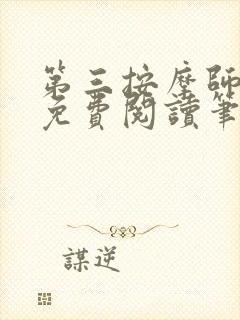 第三按摩師
免費閱讀筆
謀逆